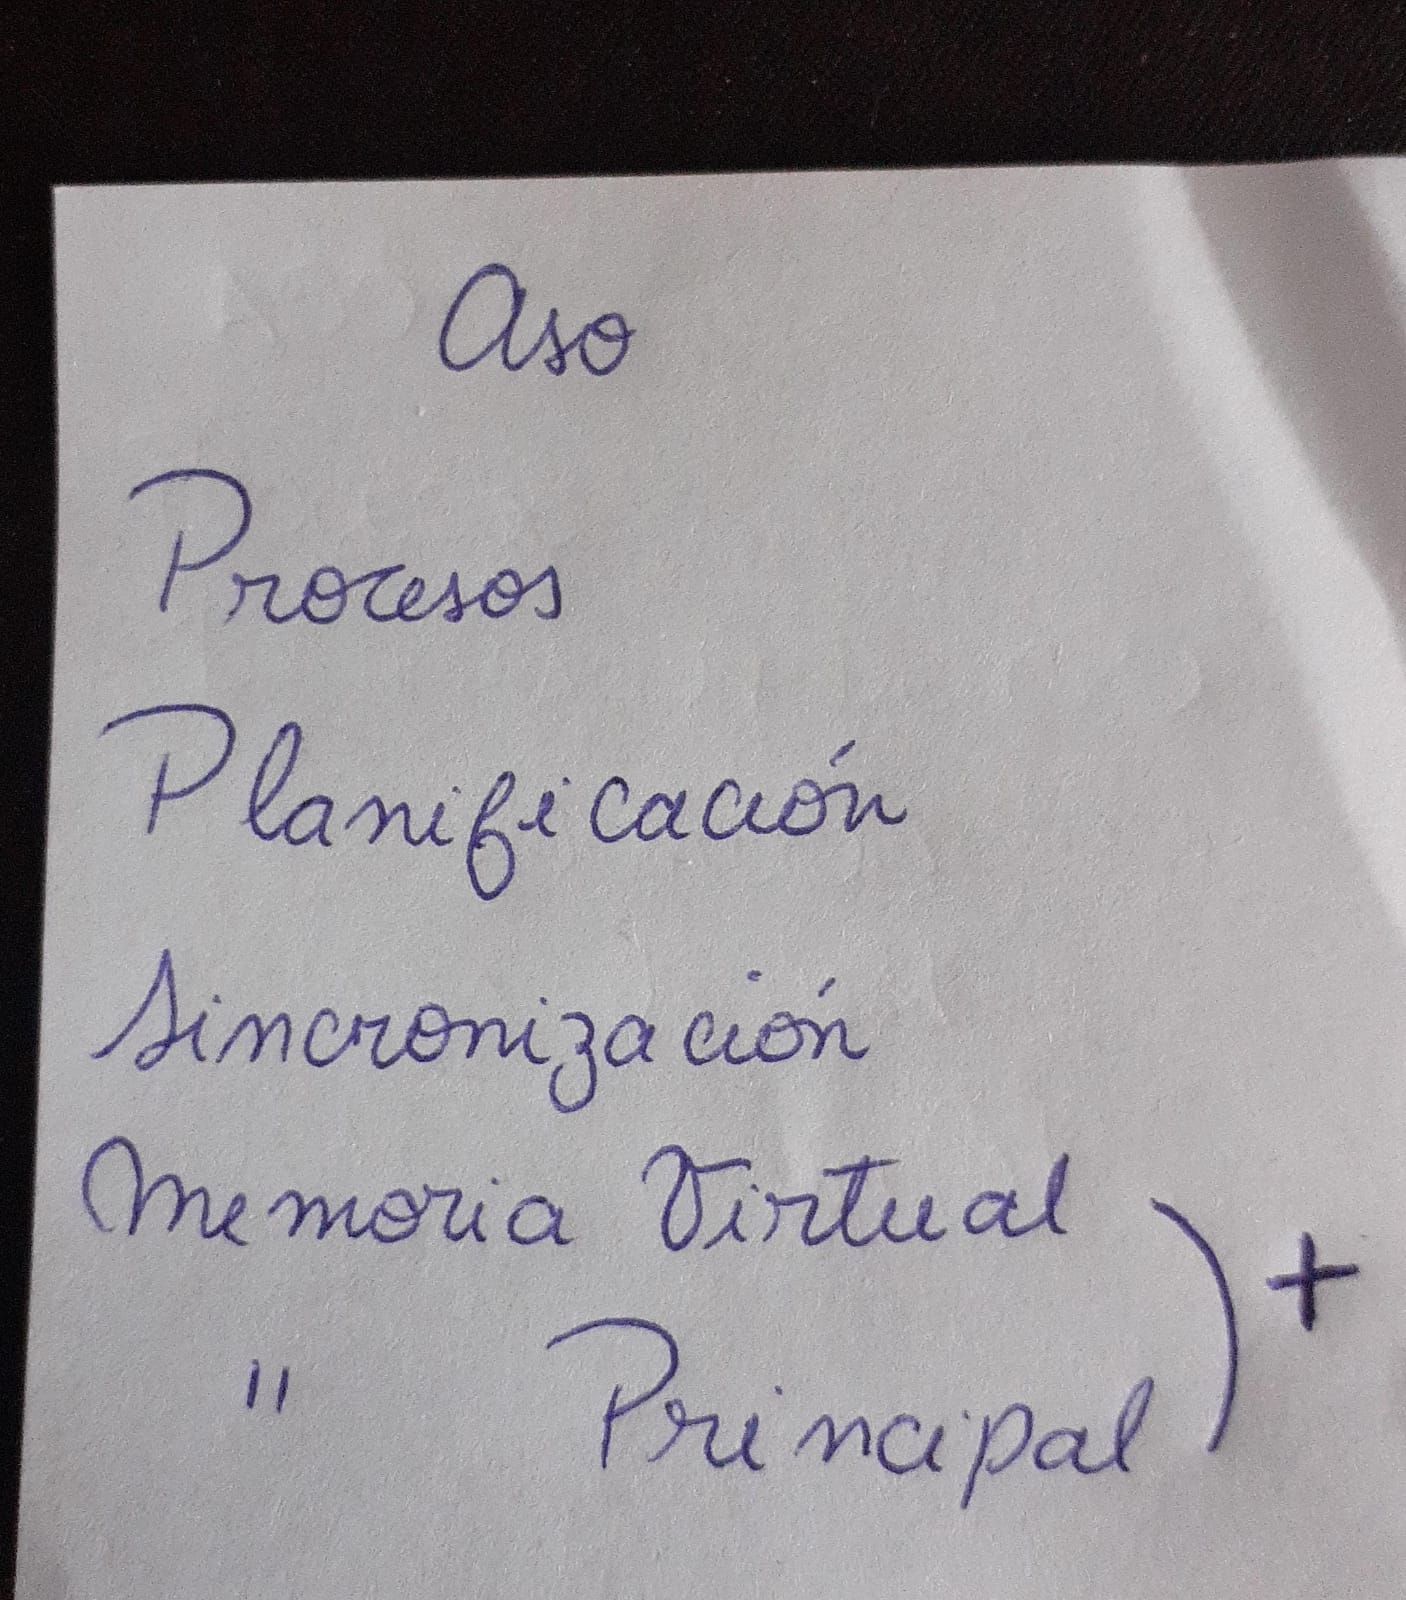 Aso
Procesos
Planificación
Sincronización
Memoria Virtual
" Principal
+